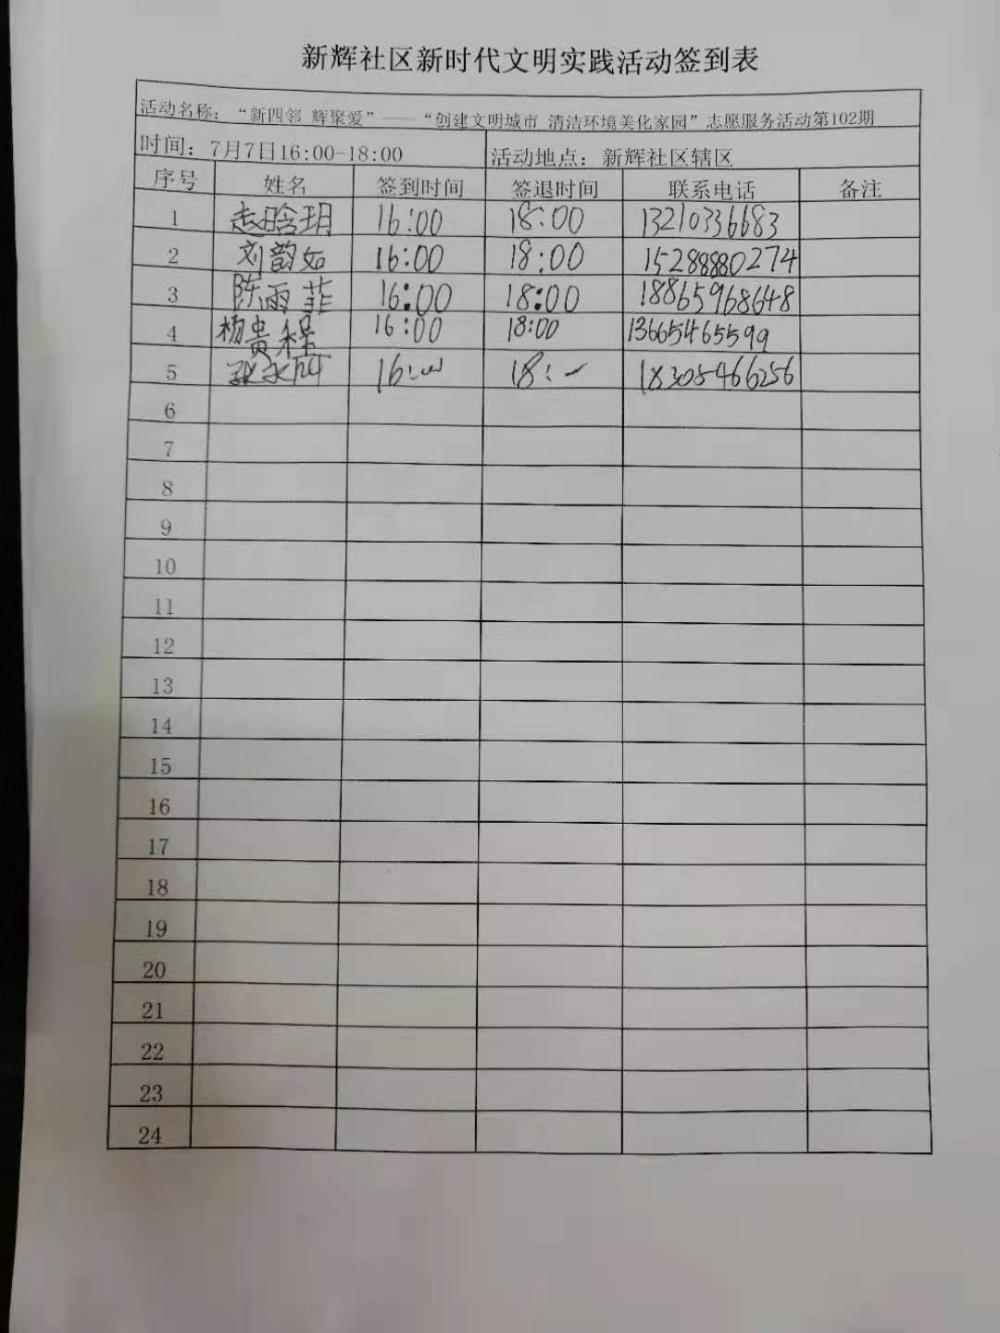 新辉社区新时代文明实践活动签到表
活动名称：“新四邻 辉聚爱”——“创建文明城市 清洁环境美化家园”志愿服务活动第102期
时间：7月7日16:00-18:00 活动地点：新辉社区辖区
序号 姓名 签到时间 签退时间 联系电话 备注
1 赵晗玥 16:00 18:00 13210336683
2 刘韵如 16:00 18:00 15288880274
3 陈雨菲 16:00 18:00 18865968648
4 杨贵程 16:00 18:00 13665465599
5 16: 18: 18305466256
6
7
8
9
10
11
12
13
14
15
16
17
18
19
20
21
22
23
24